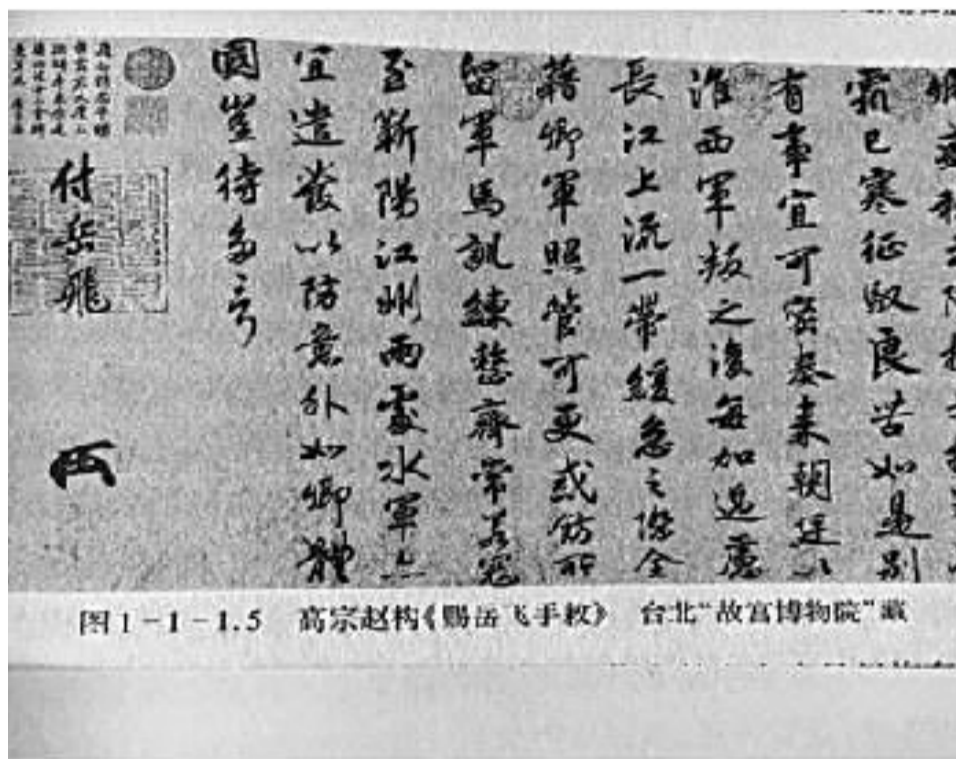 霜已寒征馭良苦如是別
有事宜可密奏來朝廷以
淮西軍叛之後每加過慮
長江上流一帶緩急之際全
藉卿軍照管可更戒飭所
留軍馬訓練整齊常若寇
至蘄陽江州兩處水軍亦
宜遣發以防意外如卿體
國豈待多言
付岳飛
图1-1-1.5 高宗赵构《赐岳飞手敕》 台北“故宫博物院”藏